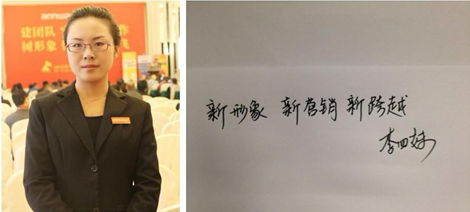 annwa
建团队
作
树形象
新形象 新营销 新跨越
李四妹